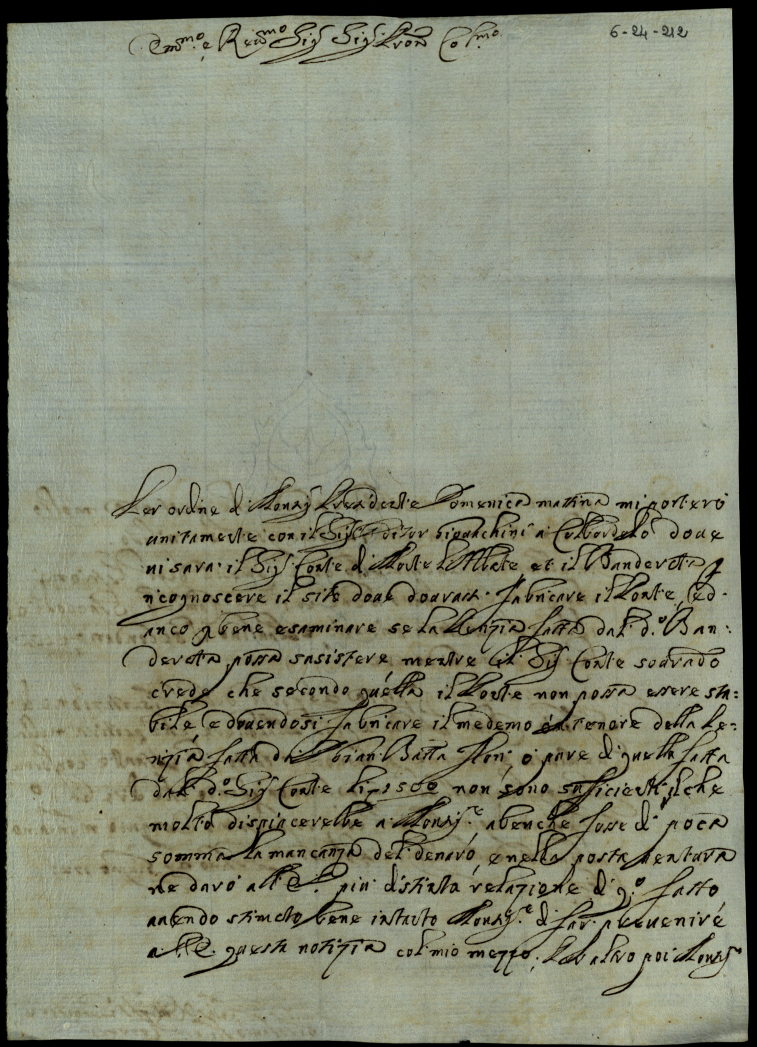 Em.mo e Rev.mo Sig.r Sig.r Pron Col.mo
6-24-212
Per ordine di Mons.r Presidente Domenica mattina mi porterò
unitamente con il Sig.r Bipacchini a Colbordolo doue
ui sara il Sig.r Conte di Monte l'Abate et il Banderola p
ricognoscere il sito doue dourassi fabricare il Ponte, ed
anco p bene esaminare se la Perizia fatta dal d.o Ban:
derola possa sasistere mentre il Sig.r Conte sudetto
crede che secondo quella il Ponte non possa essere sta:
bile e douendosi fabricare il medemo a tenore della Pe:
rizia fatta da Gian Batta o pure di quella fatta
dal d.o Sig.r Conte li 1500 non sono suficienti il che
molto dispiacerebbe a Mons.re abenche fosse di poca
somma la mancanza del denaro, e nella posta uentura
ne darò all' E. più distinta relazione di q.o fatto
auendo stimato bene intanto Mons.re di far preuenire
a V.E. questa notizia col mio mezzo. Per altro poi Mons.re